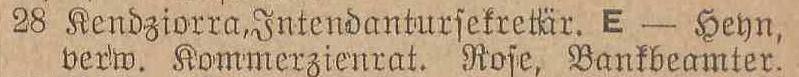 28 Kendziorra, Intendantursekretär. E — Heyn,
verw. Kommerzienrat. Rose, Bankbeamter.